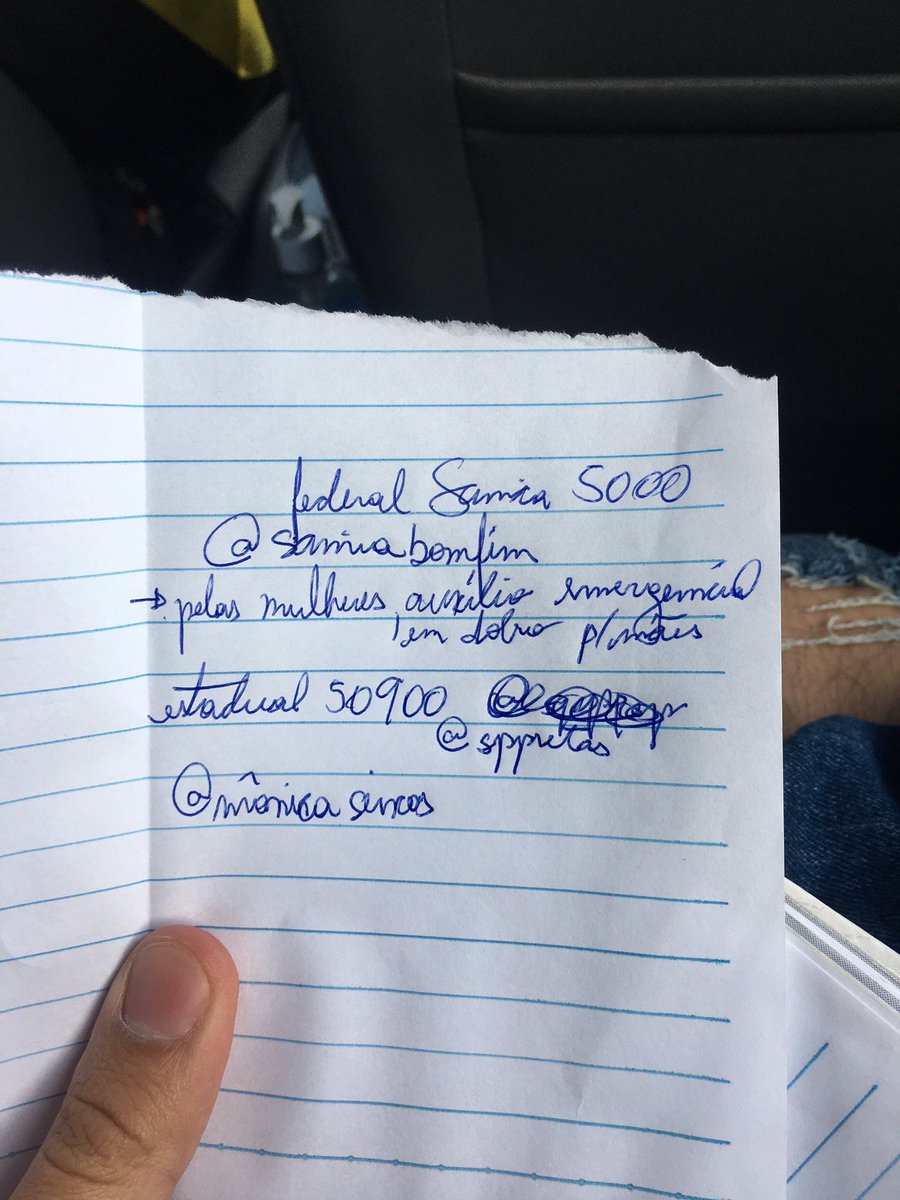 federal Samia 5000
@samiabomfim
→ pelas mulheres, auxílio emergencial
em dobro p/mães
estadual 50900
@sppretas
@mônica seixas